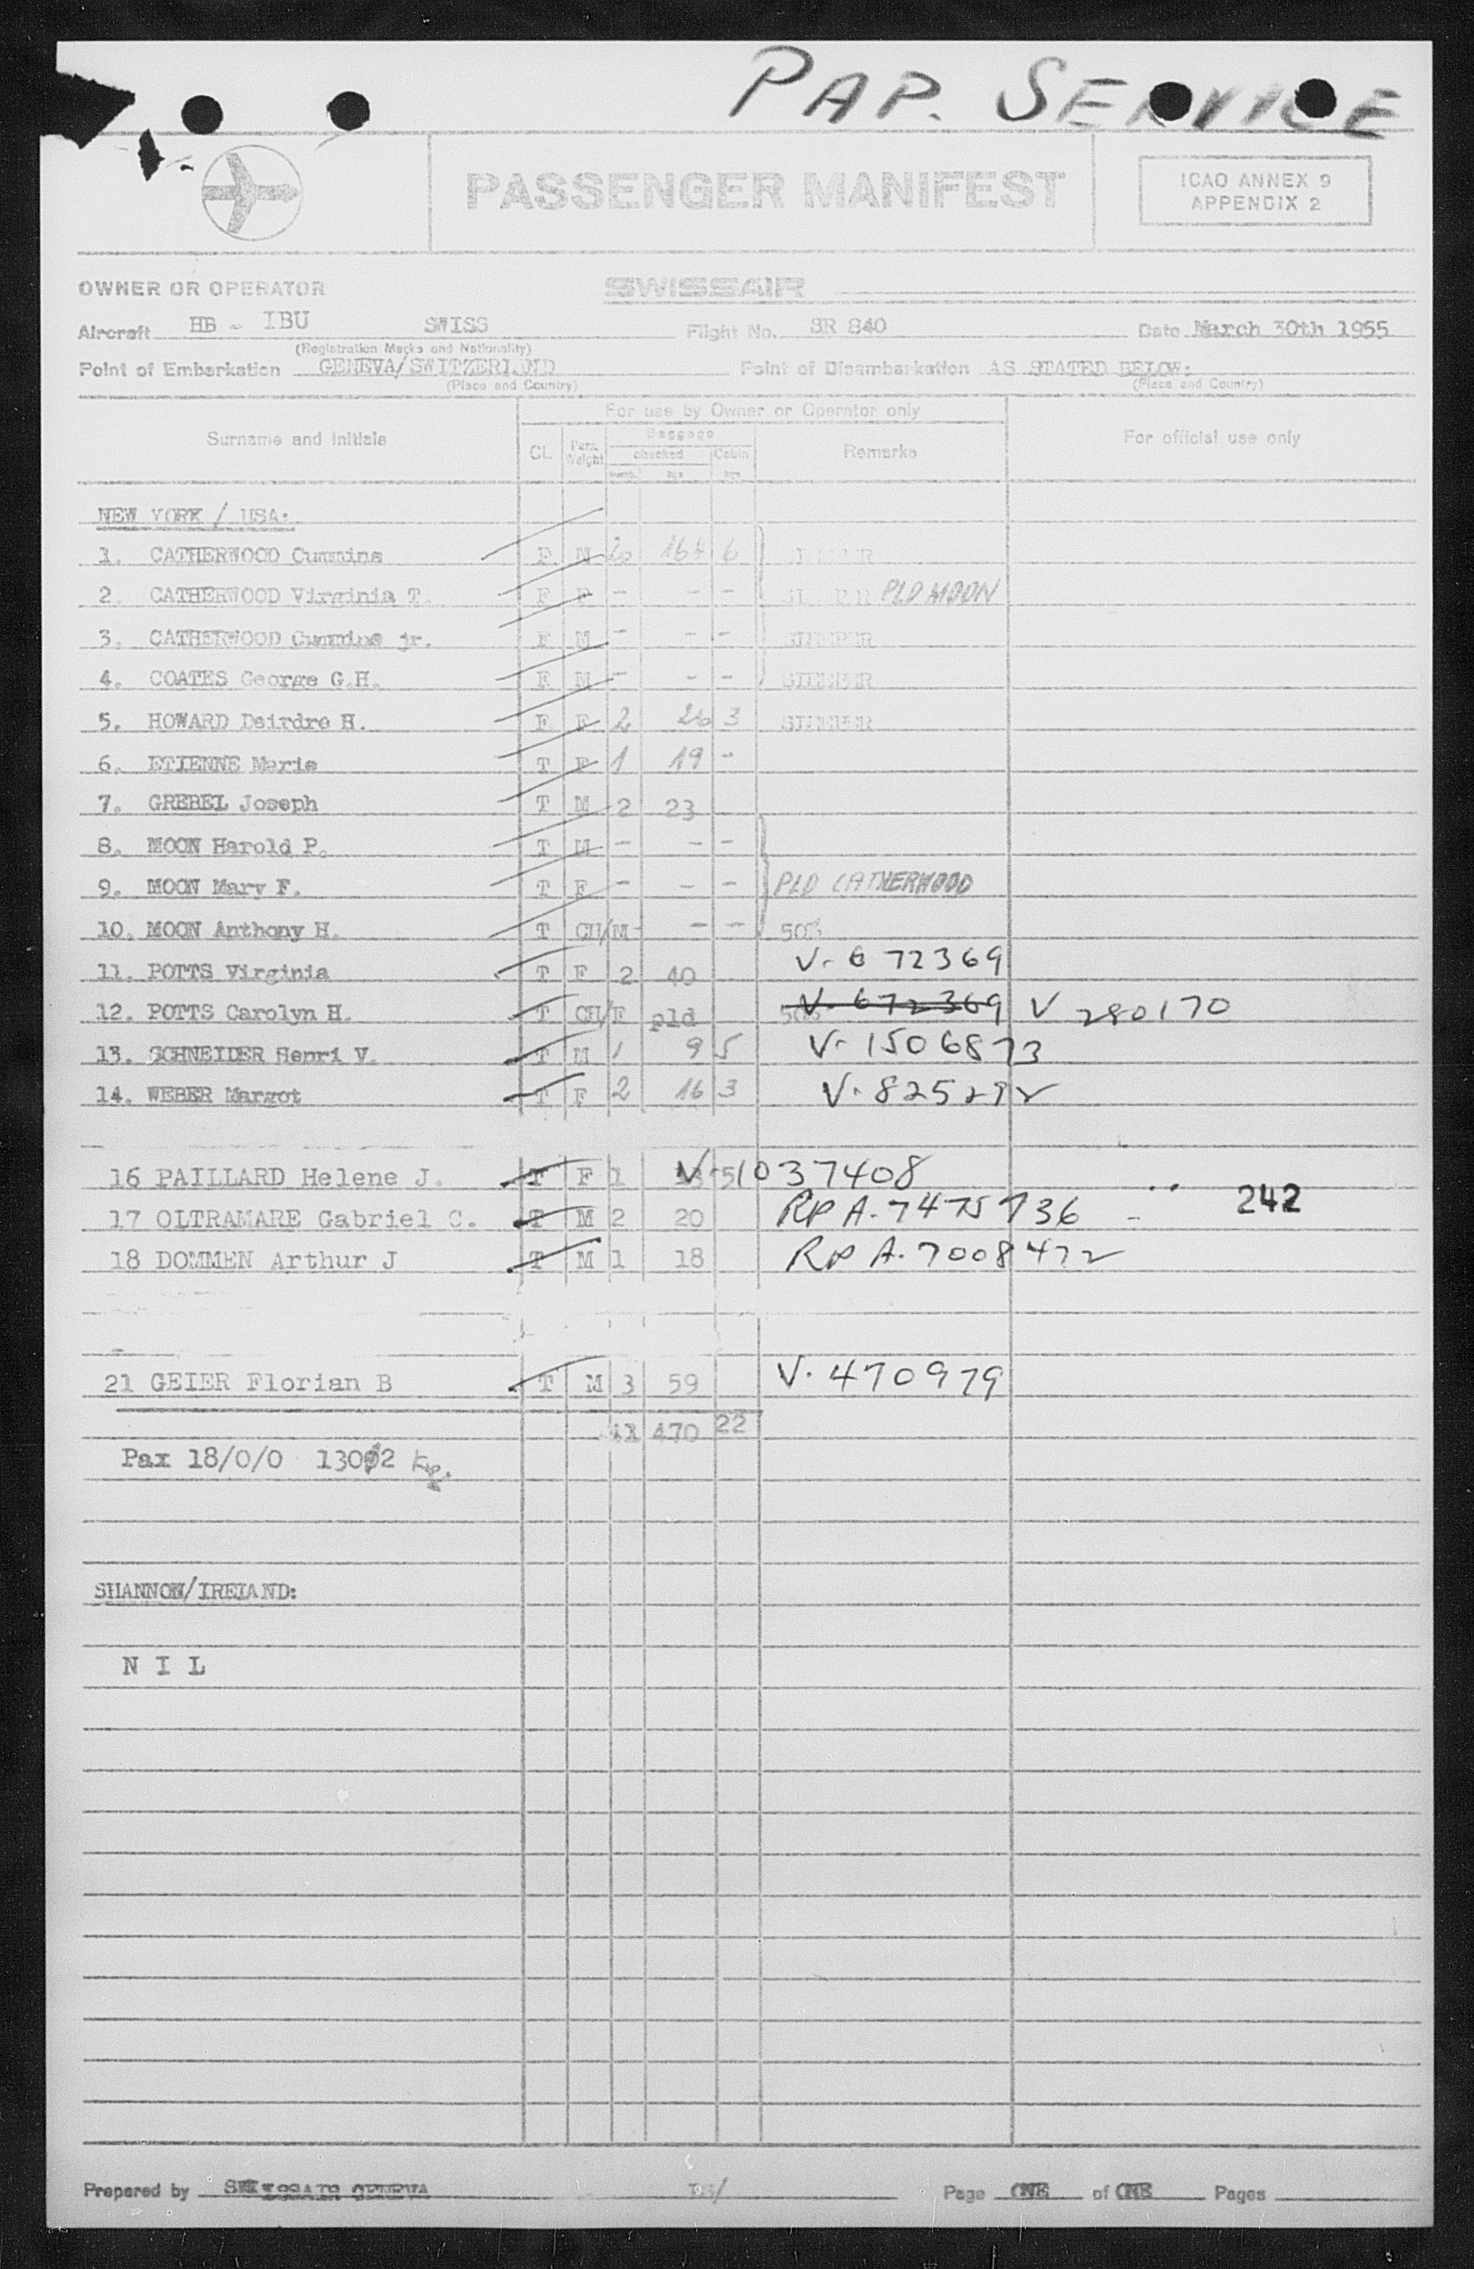 PAP. SERVICE
PASSENGER MANIFEST
ICAO ANNEX 9
APPENDIX 2
OWNER OR OPERATOR SWISSAIR
Aircraft HB - IBU SWISS Flight No. SR 840 Date March 30th 1955
(Registration Marks and Nationality)
Point of Embarkation GENEVA/SWITZERLAND Point of Disembarkation AS STATED BELOW:
(Place and Country) (Place and Country)
For use by Owner or Operator only
Surname and Initials CL. Pass. Weight Baggage Remarks For official use only
checked Cabin
NEW YORK / USA:
1. CATHERWOOD Cummins F M 20 164 6 SLEEPER
2. CATHERWOOD Virginia T. F F - - - SLEEPER PLD MOON
3. CATHERWOOD Cummins jr. F M - - - SLEEPER
4. COATES George G.H. F M - - - SLEEPER
5. HOWARD Deirdre H. F F 2 26 3 SLEEPER
6. ETIENNE Marie T F 1 19 -
7. GREBEL Joseph T M 2 23
8. MOON Harold P. T M - - -
9. MOON Mary F. T F - - - PLD CATHERWOOD
10. MOON Anthony H. T CH/M - - - 50%
11. POTTS Virginia T F 2 40 V- 672369
12. POTTS Carolyn H. T CH/F pld 50% V- 672369 V 280170
13. SCHNEIDER Henri V. T M 1 9 5 V- 1506873
14. WEBER Margot T F 2 16 3 V.
16 PAILLARD Helene J. T F 1 5 V-1037408
17 OLTRAMARE Gabriel C. T M 2 20 RP A-7475736 242
18 DOMMEN Arthur J T M 1 18 RP A-7008472
21 GEIER Florian B T M 3 59 V. 470979
470 22
Pax 18/0/0 1302
SHANNON/IRELAND:
N I L
Prepared by SWISSAIR GENEVA Page ONE of ONE Pages